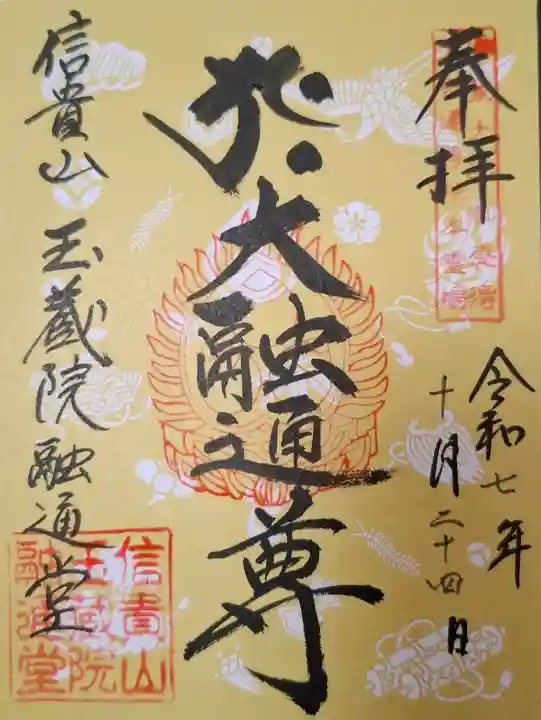 奉拝
令和七年
十月二十四日
大融通尊
信貴山 玉蔵院融通堂
信貴山
玉蔵院
融通堂